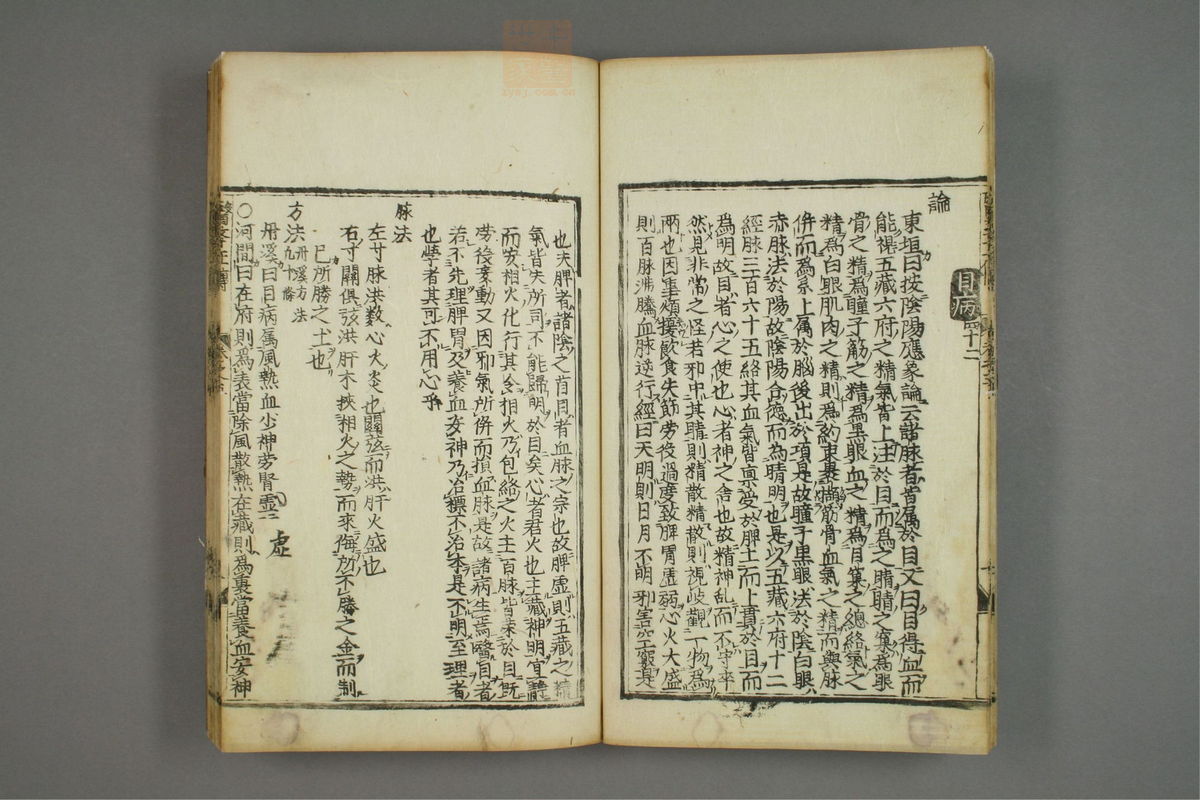 目病 四十二
論
東垣曰按陰陽應象論云諸脉者皆属於目又曰目得血而
能視五藏六府之精氣皆上注於目而為之睛睛之窠為眼
骨之精為瞳子筋之精為黒眼血之精為目窠之總絡氣之
精為白眼肌肉之精則為約束裹擷筋骨血氣之精而與脉
併而為系上属於腦後出於項是故瞳子黒眼法於陰白眼
赤脉法於陽故陰陽合德而為睛明也是以五藏六府十二
經脉三百六十五絡其血氣皆稟受於脾土而上貫於目而
為明故目者心之使也心者神之舍也故精神乱而不守卒
然見非常之怪若邪中其睛則精散精散則視歧觀一物為
兩也因事煩擾飲食失節劳役過度致脾胃虚弱心火大盛
則百脉沸騰血脉逆行經曰天明則日月不明邪害空竅是
也夫脾者諸陰之首目者血脉之宗也故脾虚則五藏之精
氣皆失所司不能歸明於目矣心者君火也主藏神明宜靜
而安相火化行其令相火乃包絡之火主百脉皆荣於目既
劳役妄動又因邪氣所併而損血脉是故諸病生焉醫目者
若不先理脾胃及養血安神乃治標不治本是不明至理者
也學者其可不用心乎
脉法
左寸脉洪數心火炎也關弦而洪肝火盛也
右寸關俱弦洪肝木挾相火之勢而來侮所不勝之金而制
已所勝之土也
方法 丹溪方法九十條
丹溪曰目病属風熱血少神劳腎虚
虚
○河間曰在府則為表當除風散熱在藏則為裏當養血安神